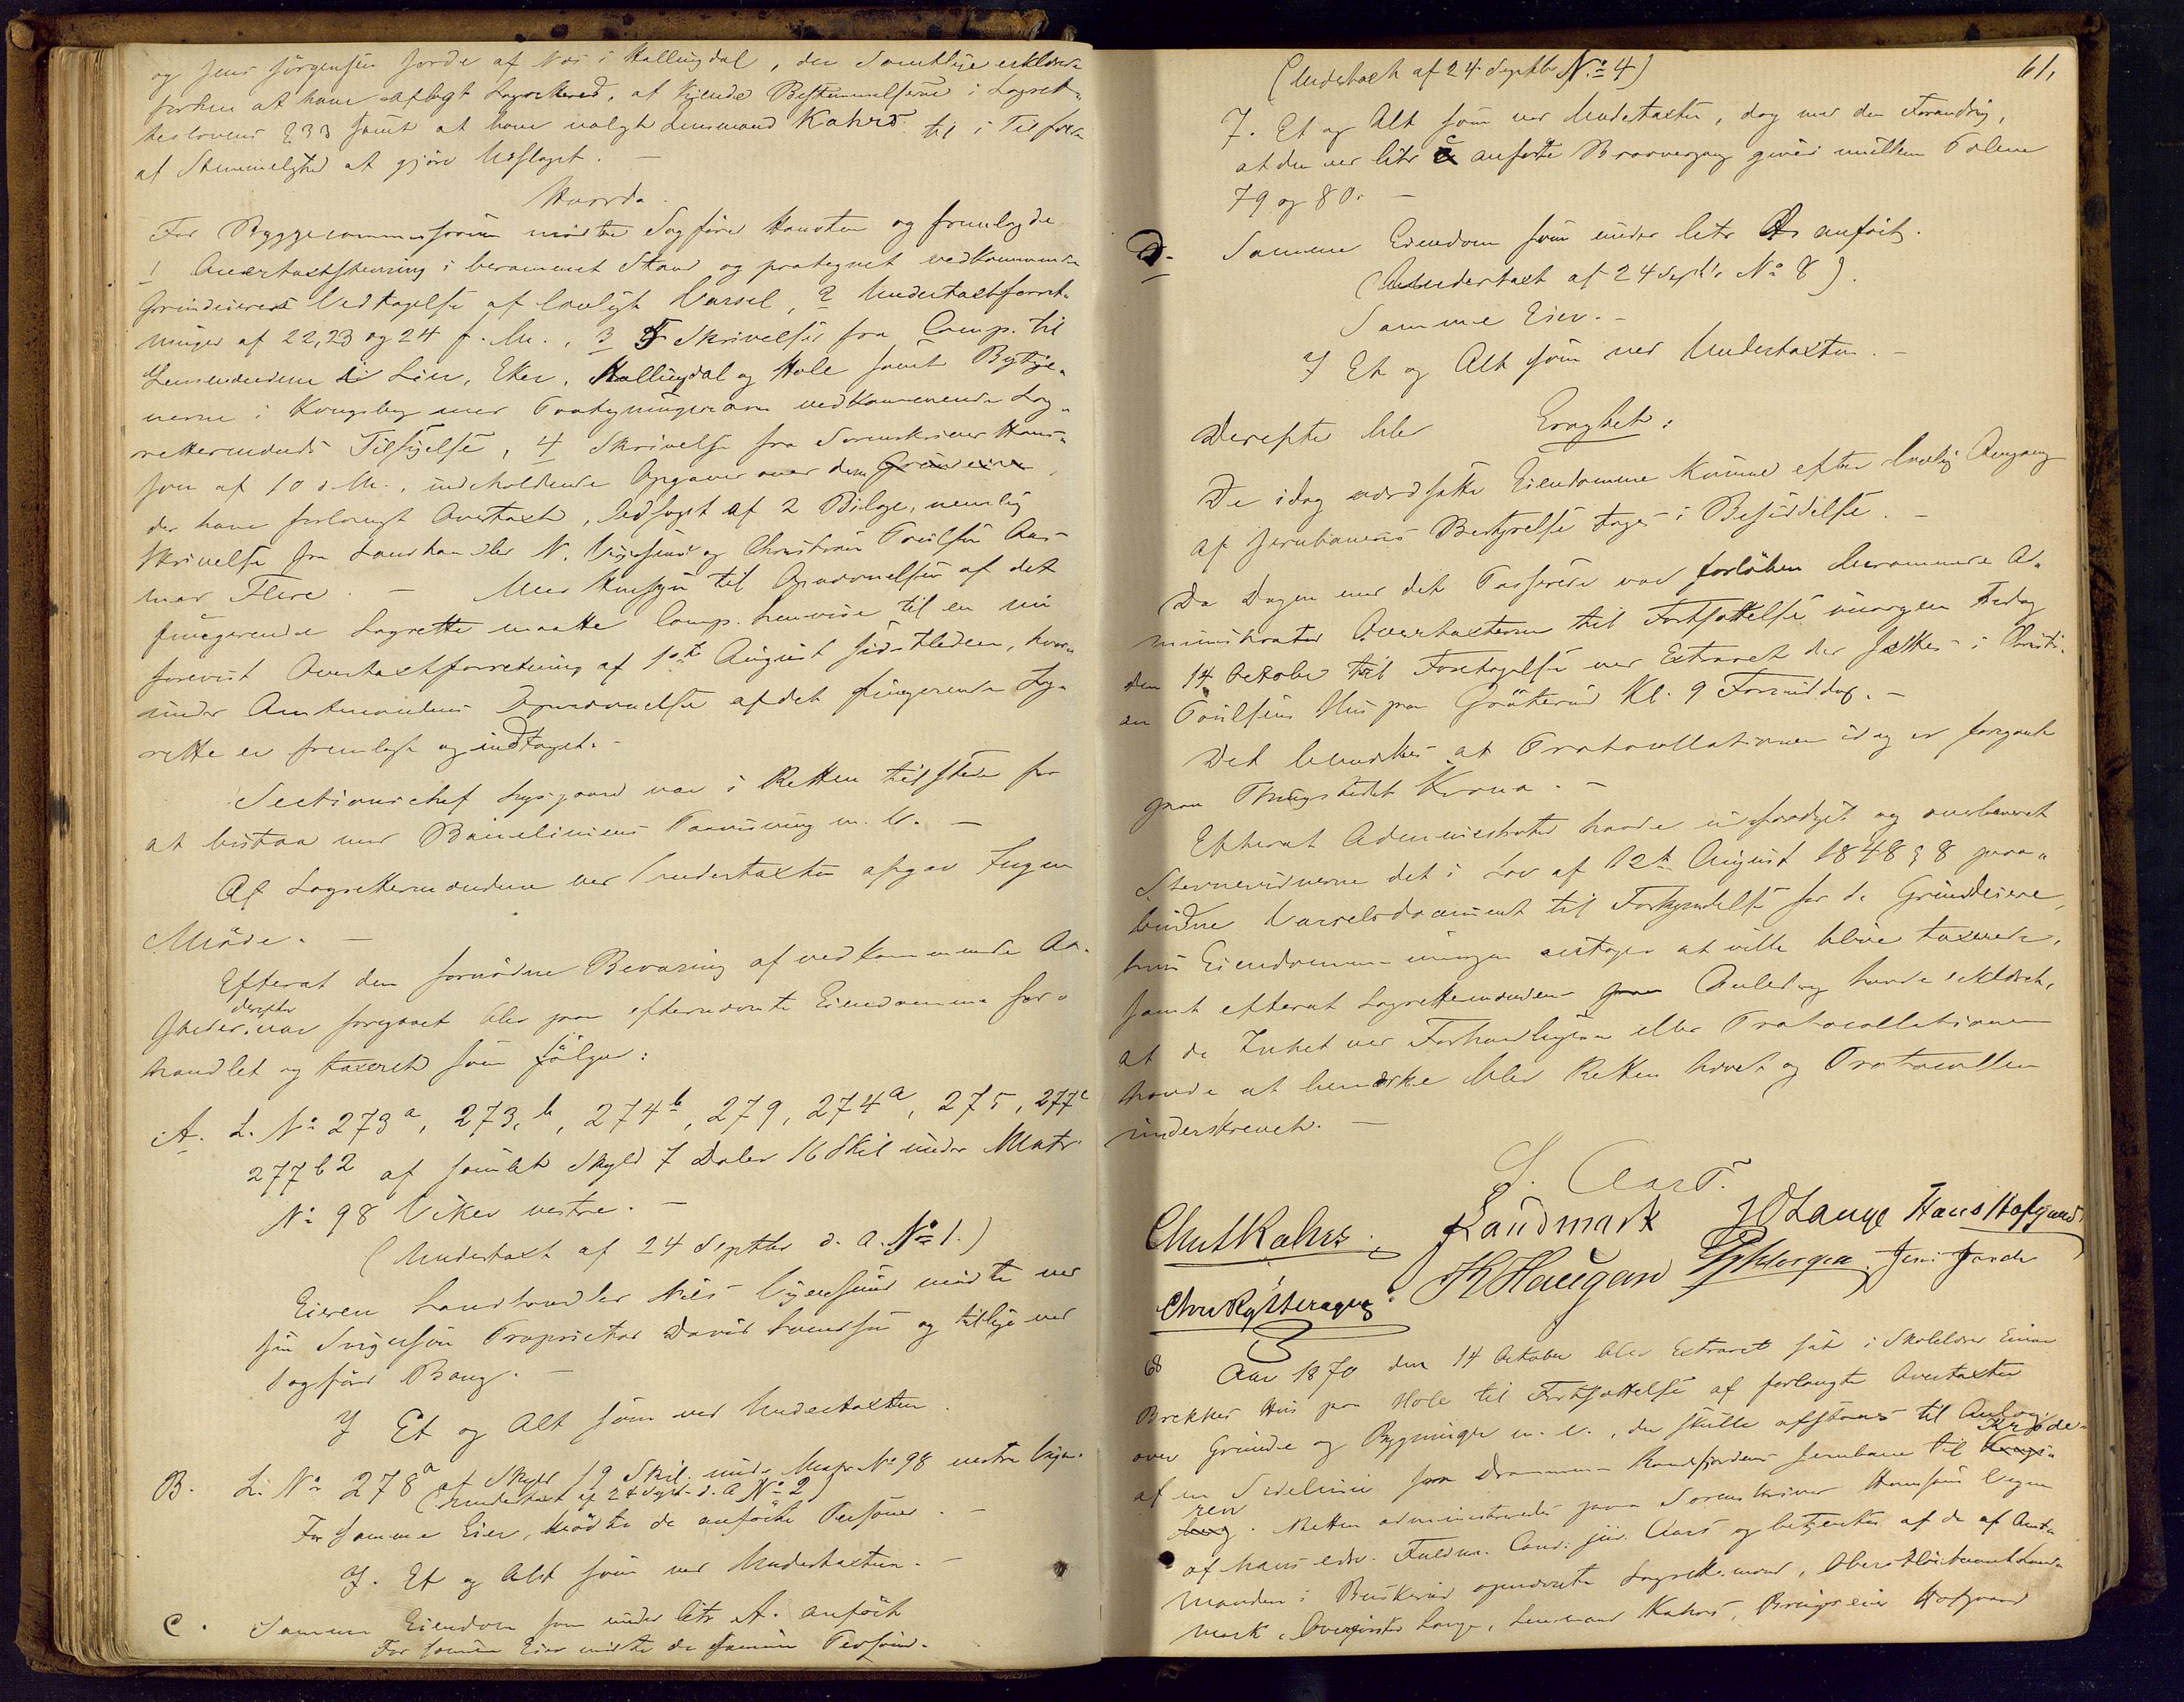 og Jens Jørgensen Jorde af Næs i Hallingdal, der Samtlige erklærede
forhen at have aflagt Lagretteed, at kjende Bestemmelserne i Lagret-
teslovens § 33 samt at have valgt Lensmand Kahrs til i Tilfælde
af Stemmelighed at gjøre Udslaget. —
Hvorda.
For Byggecommissionen mødte Sagfører Hansteen og fremlagde
1 Overtaxtstevning i berammet Stand og paategnet vedkommende
Grundeieres Vedtagelse af lovligt Varsel, 2 Undertaxtforret-
ninger af 22, 23 og 24 f. M., 3 5 Skrivelser fra Comp. til
Lensmændene i Lier, Eker, Hallingdal og Hole samt Byfoge-
nerne i Kongsberg med Paategninger om vedkommende Lag-
rettesmænds Tilsigelse, 4 Skrivelse fra Sorenskriver Han-
sen af 10 d. M., indeholdende Opgaver over dem Grundeiere,
der have forlangt Overtaxt, ledsaget af 2 Bilage, nemlig
Skrivelse fra Landhandler N. Vigersund og Christian Poulsen Aas-
mar Flere. — Med Hensyn til Opnævnelsen af det
fungerende Lagrette maatte Comp. henvise til en nu
forevist Overtaxtforretning af 1ste August sidstleden, hvor-
under Amtmandens Opnævnelse af det fungerende Lag-
rette er fremlagt og indtaget. -
Sectionschef Lysgaard var i Retten tilstede for
at bistaa med Baneliniens Paavisning m. V. —
Af Lagrettemændene ved Undertaxten afgav Ingen
Møde. —
Efterat den fornødne Bevaring af vedkommende Aa-
steder derefter var foregaaet blev paa efternævnte Eiendomme for-
handlet og taxeret som følger:
A. L. No 273a, 273,b, 274b, 279, 274a, 275, 277c
277b2 af samlet Skyld 7 Daler 16 Skil under Matr.
No 98 Viker vestre. —
(Undertaxt af 24 Septbr d. A. No 1.)
Eieren Landhandler Nils Vigersund mødte ved
sin Svigersøn Proprietær David Svendsen og tillige ved
Sagfører Bang. —
7 Et og Alt som ved Undertaxten.
B. L. No 278a af Skyld 19 Skil. under Matr No 98 vestre Vigr.
(Undertaxt af 24 Septr d. A No 2)
For samme Eier, mødte de anførte Personer. —
7. Et og Alt som ved Undertaxten. —
C. Samme Eiendom som under litr A. anført
For samme Eier mødte de samme Personer.
61,
(Undertaxt af 24 Septbr No 4)
7. Et og Alt som ved Undertaxten, dog med den Forandring,
at den ved litr c anførte Broovergang gives mellem Pælene
79 og 80. —
D. Samme Eiendom som under litr A anført.
(Undertaxt af 24 Septbr No 8).
Samme Eier. -
7 Et og Alt som ved Undertaxten. —
Derefter blev Eragtet:
De idag værdsatte Eiendomme kunne efter lovlig Omgang
af Jernbanens Bestyrelse tages i Besiddelse. —
Da Dagen med det Passerede var forløben berammede Ad-
ministrator Overtaxterne til Fortsættelse imorgen Fredag
den 14 October til Foretagelse ved Extraret der sættes i Christi-
an Poulsens Hus paa Gråterud Kl. 9 Formiddag. —
Det bemærkes at Protocollationen idag er foregaaet
paa Thingstedet Krona. —
Efterat Administrator havde udfærdiget og overleveret
Stevnevidnerne det i Lov af 12te August 1848 § 8 paa-
budne Varselsdocument til Forkyndelse for de Grundeiere,
hvis Eiendomme imorgen antages at ville blive taxerede,
samt efterat Lagrettemændene paa Anledning havde erklæret,
at de Intet ved Forhandlingen eller Protocollationen
havde at bemærke blev Retten hævet og Protocollen
underskrevet. —
S. Aars.
Chr Kahrs. Landmark JO Lange Hans Hofgaard
K Haugan Jens Jorde
68 Aar 1870 den 14 October blev Extraret sat i Skolelærer Einar
Brekkes Hus paa Hole til Fortsættelse af forlangte Overtaxter
over Grunde og Bygninger m. v., der skulle afstaaes til Anlæg
af en Sidelinie fra Drammen-Randsfjordens Jernbane til Krøde-
ren. Retten administreredes paa Sorenskriver Hansens Vegne
af hans edsv. Fuldm. Cand. jur. Aars og betjentes af de af Amt-
manden i Buskerud opnævnte Lagrettemænd, Oberstlieutenant Land-
mark, Overførster Lange, Lensmand Kahrs, Brugseier Hofgaard